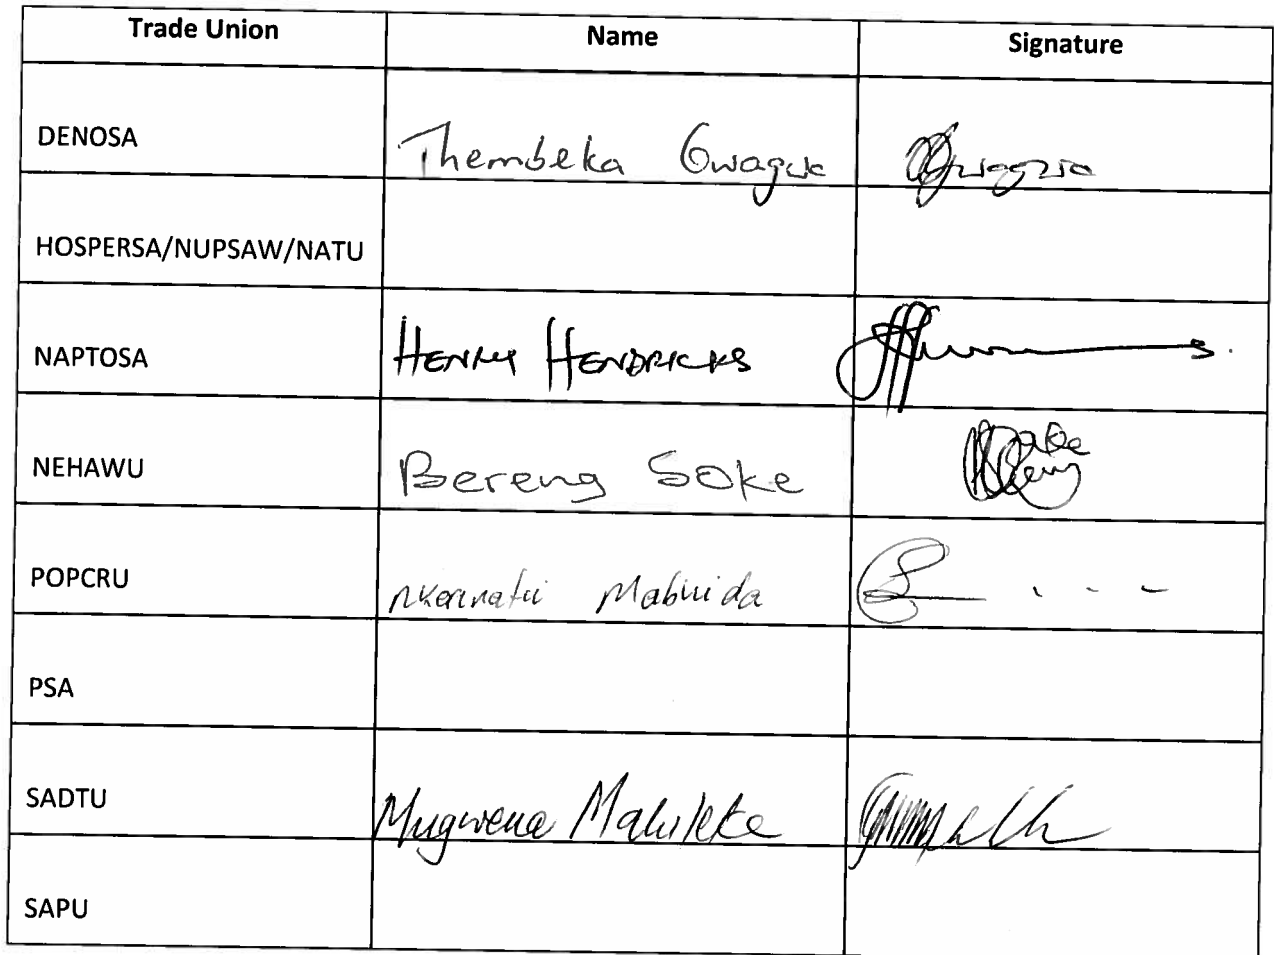 Trade Union Name Signature
DENOSA Thembeka Gwagwa Gwagwa
HOSPERSA/NUPSAW/NATU
NAPTOSA HENRY HENDRICKS
NEHAWU Bereng Soke
POPCRU
PSA
SADTU Mugwena Maluleke
SAPU